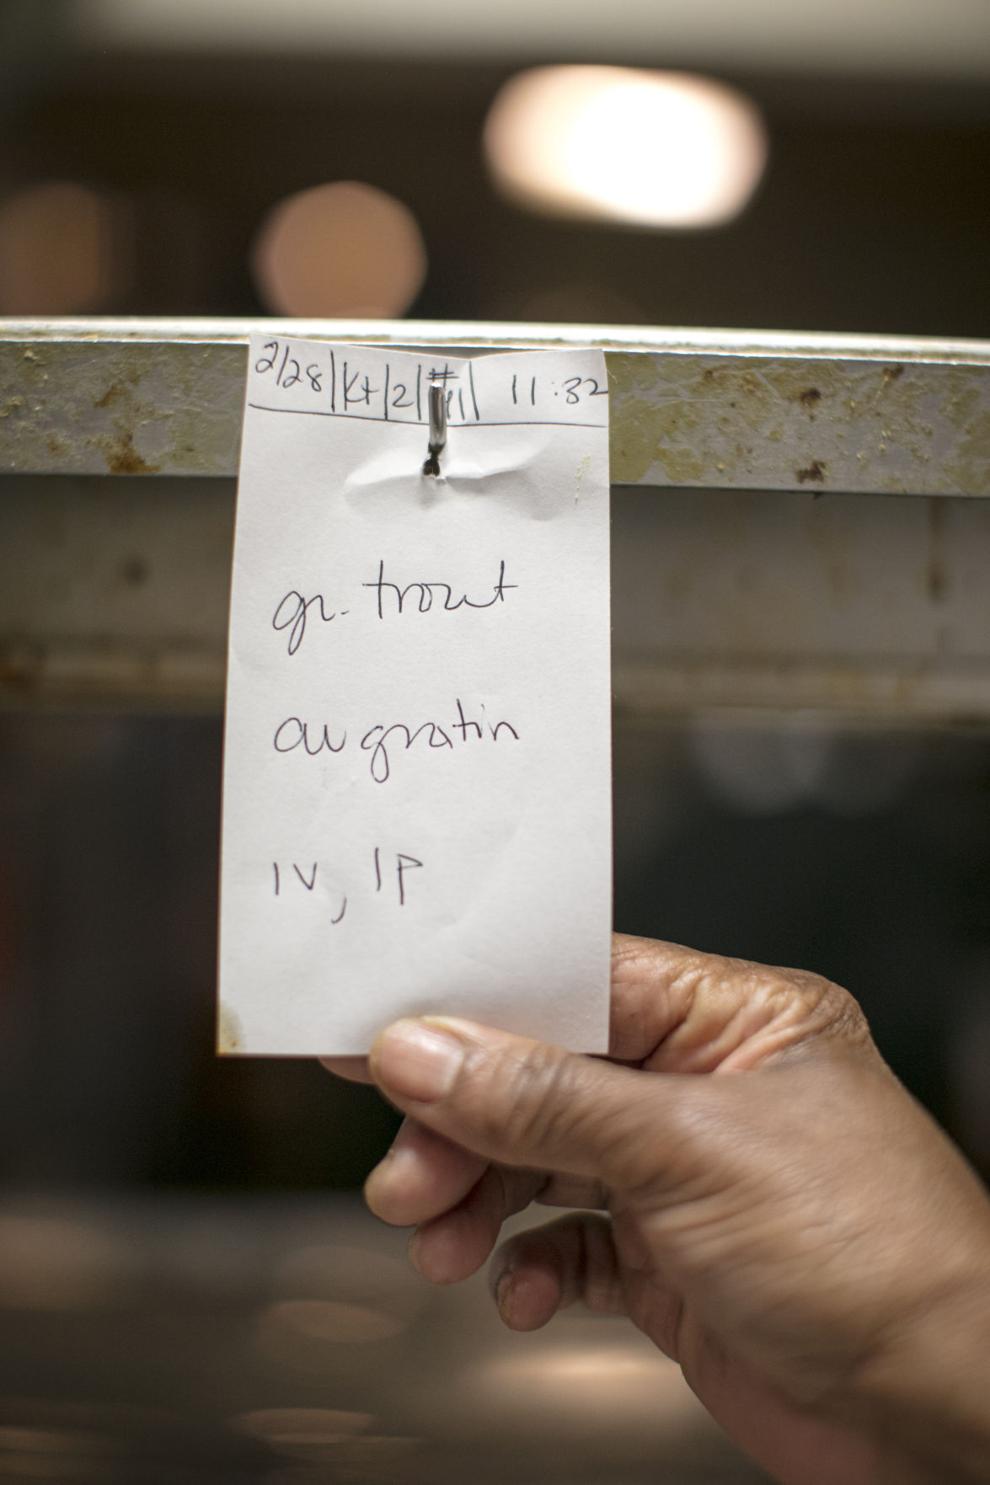 2/28|Kt|2|#41| 11:32
gr. trout
au gratin
1V, 1P